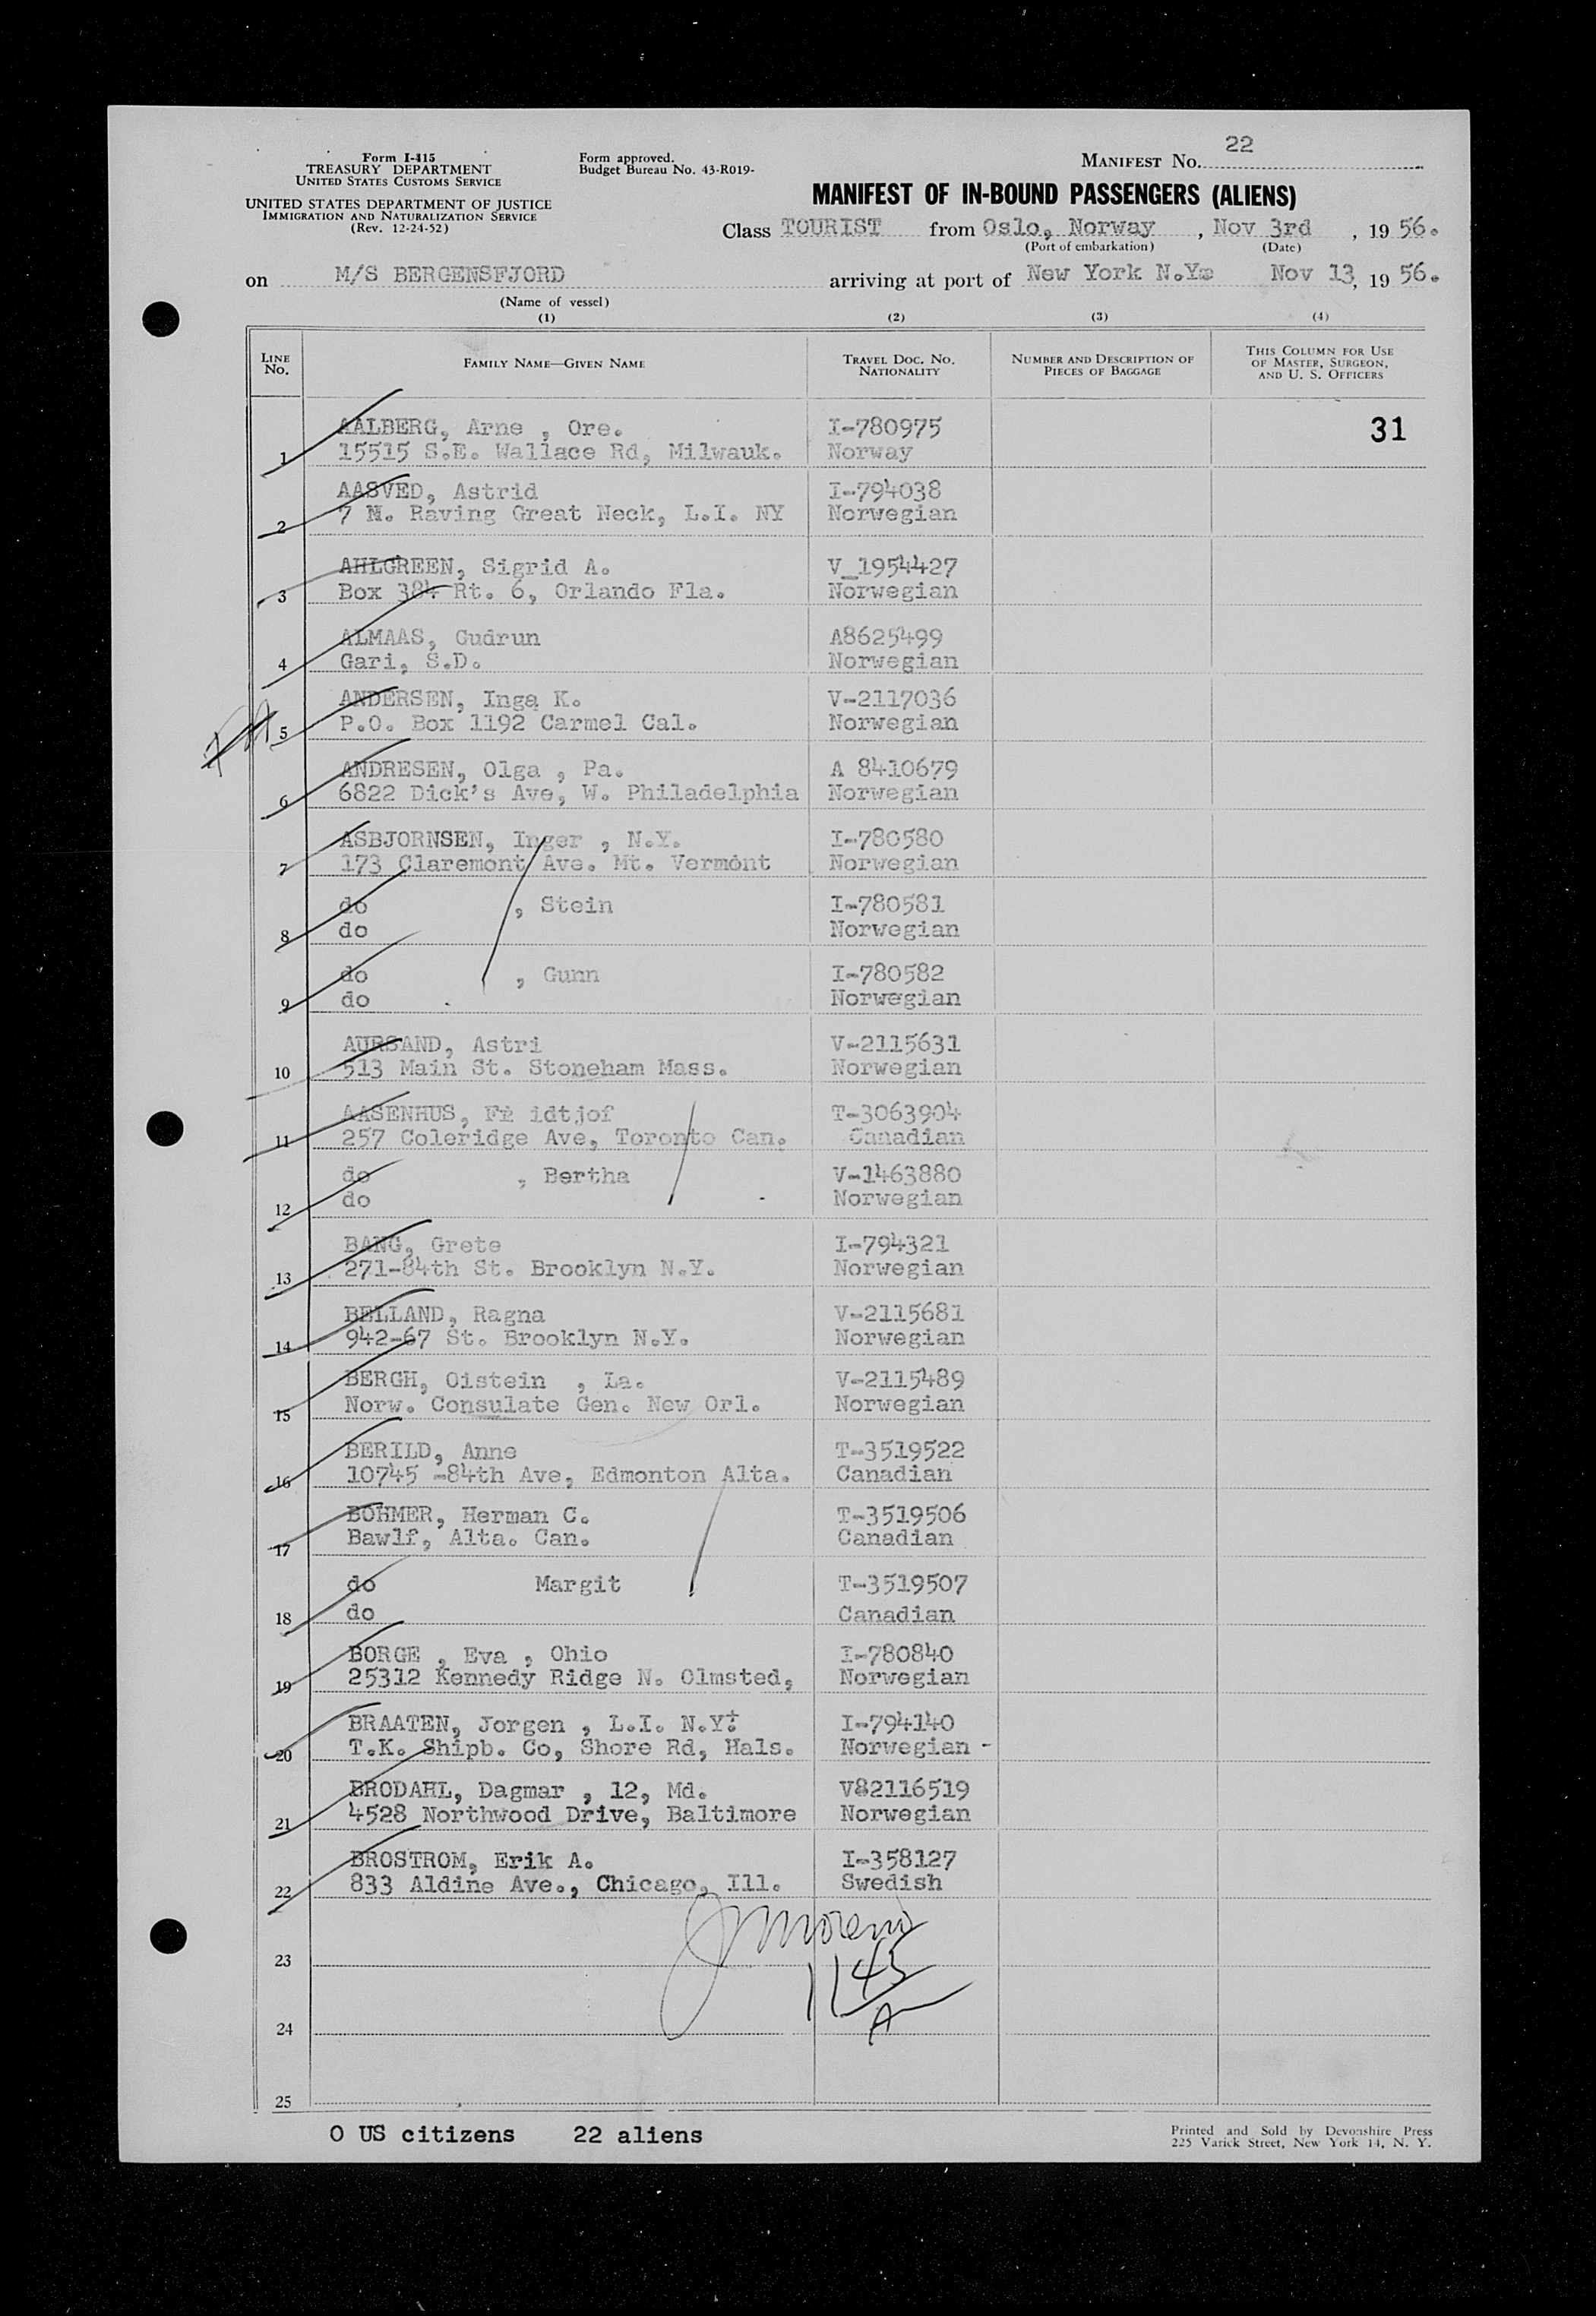 Form I-415
TREASURY DEPARTMENT
UNITED STATES CUSTOMS SERVICE
UNITED STATES DEPARTMENT OF JUSTICE
IMMIGRATION AND NATURALIZATION SERVICE
(Rev. 12-24-52)
Form approved.
Budget Bureau No. 43-R019-
MANIFEST No. 22
MANIFEST OF IN-BOUND PASSENGERS (ALIENS)
Class TOURIST from Oslo, Norway , Nov 3rd , 19 56.
(Port of embarkation) (Date)
on M/S BERGENSFJORD arriving at port of New York N.Y. Nov 13, 19 56.
(Name of vessel)
(1) (2) (3) (4)
LINE No. FAMILY NAME—GIVEN NAME TRAVEL DOC. NO. NATIONALITY NUMBER AND DESCRIPTION OF PIECES OF BAGGAGE THIS COLUMN FOR USE OF MASTER, SURGEON, AND U. S. OFFICERS
AALBERG, Arne , Ore. I-780975 31
1 15515 S.E. Wallace Rd, Milwauk. Norway
AASVED, Astrid I-794038
2 7 N. Raving Great Neck, L.I. NY Norwegian
AHLGREEN, Sigrid A. V_1954427
3 Box 384 Rt. 6, Orlando Fla. Norwegian
ALMAAS, Gudrun A8625499
4 Gari, S.D. Norwegian
ANDERSEN, Inga K. V-2117036
5 P.O. Box 1192 Carmel Cal. Norwegian
ANDRESEN, Olga , Pa. A 8410679
6 6822 Dick's Ave, W. Philadelphia Norwegian
ASBJORNSEN, Inger , N.Y. I-780580
7 173 Claremont Ave. Mt. Vermont Norwegian
do , Stein I-780581
8 do Norwegian
do , Gunn I-780582
9 do Norwegian
AURSAND, Astri V-2115631
10 513 Main St. Stoneham Mass. Norwegian
AASENHUS, Fr idtjof T-3063904
11 257 Coleridge Ave, Toronto Can. Canadian
do , Bertha V-1463880
12 do Norwegian
BANG, Grete I-794321
13 271-84th St. Brooklyn N.Y. Norwegian
BELLAND, Ragna V-2115681
14 942-67 St. Brooklyn N.Y. Norwegian
BERGH, Oistein , La. V-2115489
15 Norw. Consulate Gen. New Orl. Norwegian
BERILD, Anne T-3519522
16 10745 -84th Ave, Edmonton Alta. Canadian
BOHMER, Herman C. T-3519506
17 Bawlf, Alta. Can. Canadian
do Margit T-3519507
18 do Canadian
BORGE , Eva , Ohio I-780840
19 25312 Kennedy Ridge N. Olmsted, Norwegian
BRAATEN, Jorgen , L.I. N.Y. I-794140
20 T.K. Shipb. Co, Shore Rd, Hals. Norwegian -
BRODAHL, Dagmar , 12, Md. V82116519
21 4528 Northwood Drive, Baltimore Norwegian
BROSTROM, Erik A. I-358127
22 833 Aldine Ave., Chicago, Ill. Swedish
23
1145
A
24
25
0 US citizens 22 aliens
Printed and Sold by Devonshire Press
225 Varick Street, New York 14, N. Y.